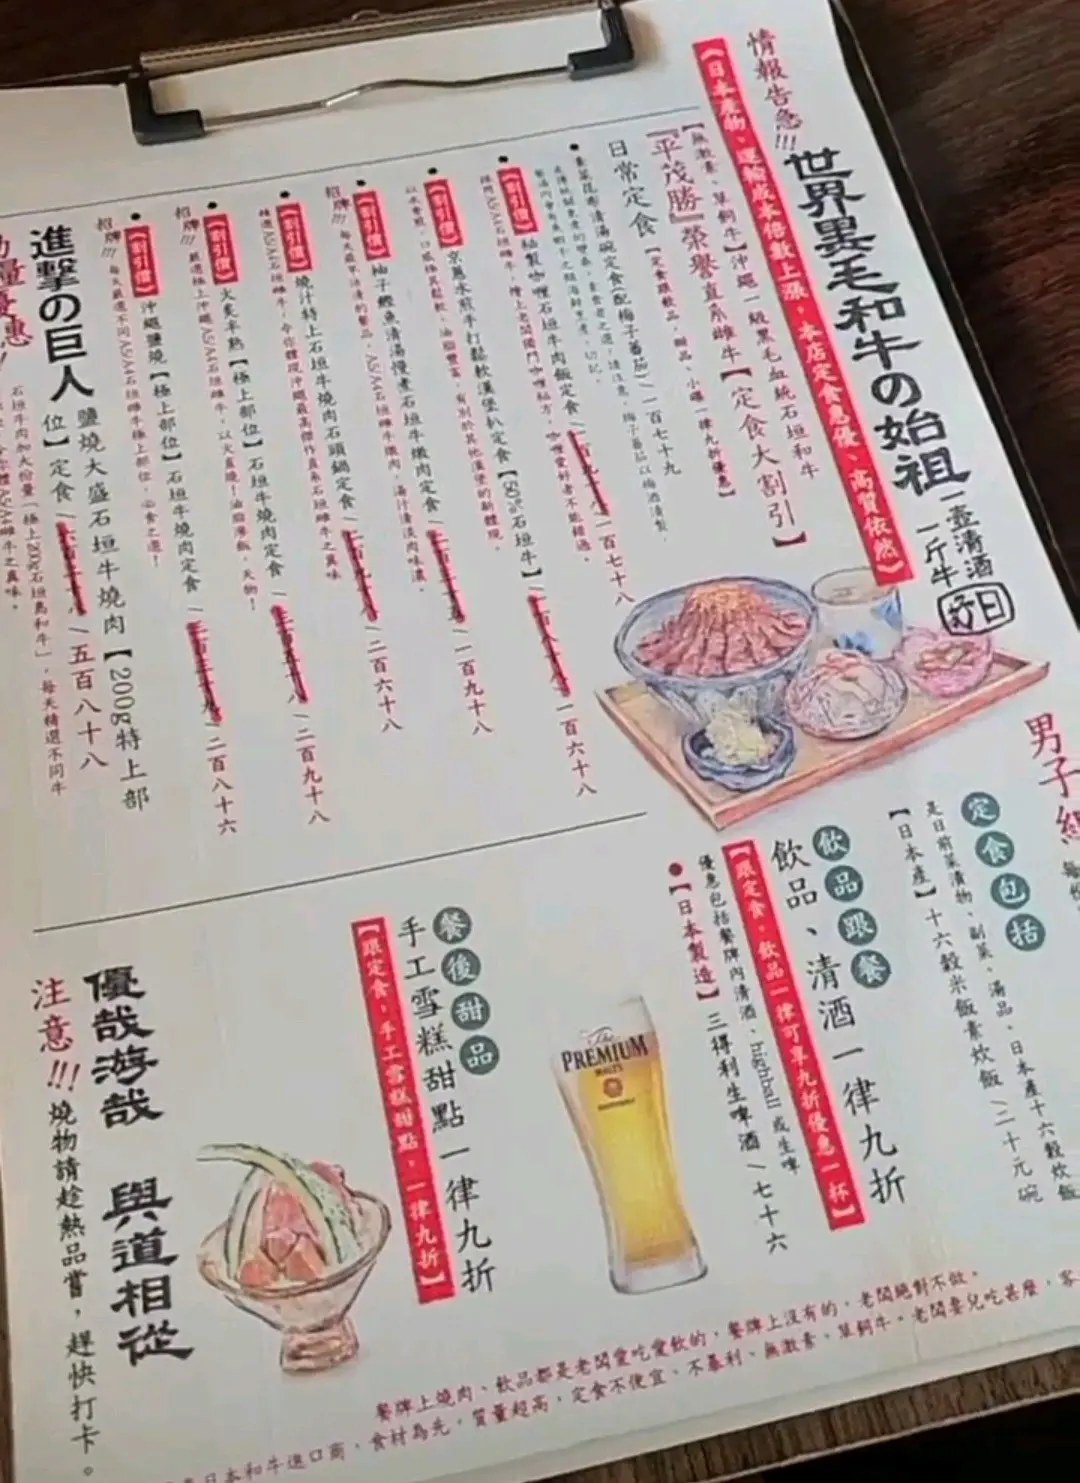 情報告急!!!
世界黑毛和牛の始祖
一壺清酒
一斤牛
《日本產物、運輸成本倍數上漲，本店定食急優、高質依然》
【無激素、草飼牛】沖繩一級黑毛血統石垣和牛
『平茂勝』榮譽直系雌牛【定食大割引】
日常定食【定食跟飲品、甜品、小碟一律九折優惠】
素菜昆布清湯碗定食(配梅子蕃茄)/一百七十九
《割引價》秘製咖喱石垣牛肉飯定食 /一百七十八
《割引價》京蔥水煎手打鬆軟漢堡扒定食【50%石垣牛】 /一百六十八
《割引價》柚子鰹魚清湯慢煮石垣牛燉肉定食 /一百九十八
招牌!!! 每天最早沽清的餐品，A5/A4石垣雌牛燉肉，湯汁清淡肉味濃。
《割引價》燒汁特上石垣牛燒肉石頭鍋定食 /二百六十八
《割引價》大炙半熟【極上部位】石垣牛燒肉定食 /二百九十八
招牌!!!
《割引價》沖繩鹽燒【極上部位】石垣牛燒肉定食 /二百八十六
招牌!!! 每天嚴選不同A5/A4石垣雌牛極上部位，必食之選！
進撃の巨人
鹽燒大盛石垣牛燒肉【200g特上部
位】定食 /五百八十八
男子
定食包括
是日前菜漬物、副菜、湯品、日本產十六穀炊飯
【日本產】十六穀米飯素炊飯 /二十元碗
飲品跟餐
飲品、清酒一律九折
【跟定食，飲品一律可享九折優惠一杯】
優惠包括餐牌內清酒、highball 或生啤
【日本製造】三得利生啤酒 /七十六
The
PREMIUM
MALT'S
SUNTORY
餐後甜品
手工雪糕甜點一律九折
【跟定食，手工雪糕甜點，一律九折】
優哉游哉 與道相從
注意!!! 燒物請趁熱品嘗，趕快打卡。
餐牌上燒肉、飲品都是老闆愛吃愛飲的，餐牌上沒有的，老闆絕對不做。
日本和牛進口商，食材為先，質量超高，定食不便宜、不暴利、無激素、草飼牛。老闆妻兒吃甚麼，客